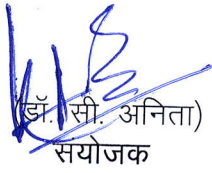 (डॉ. सी. अनिता)
संयोजक